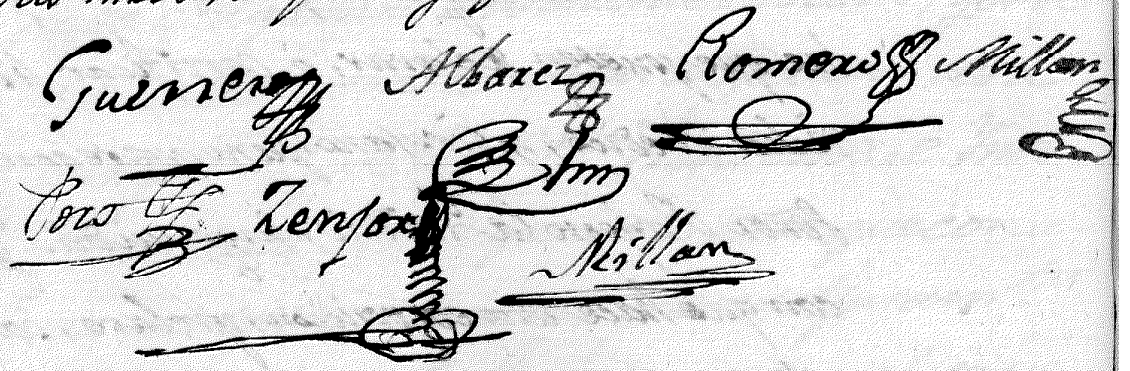 Guerrero Albarez Romero Millan
Toro Zensor
Millan